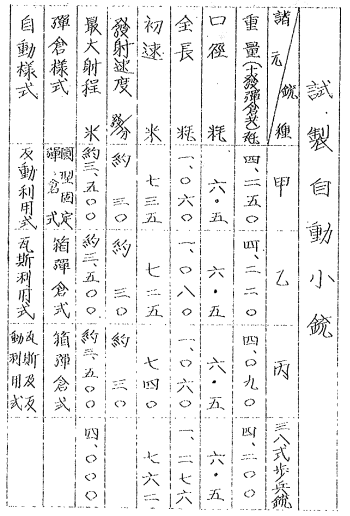 試製自動小銃
諸元 銃種 甲 乙 丙 三八式步兵銃
重量(十發彈倉共)瓩 四、二五〇 四、二二〇 四、〇九〇 四、二〇〇
口徑 粍 六・五 六・五 六・五 六・五
全長 粍 一、〇六〇 一、〇八〇 一、〇六〇 一、二七六
初速 米 七三五 七二五 七四〇 七六二
發射速度 發/分 約三〇 約三〇 約三〇
最大射程 米 約三、五〇〇 約三、五〇〇 約三、五〇〇 四、〇〇〇
彈倉樣式 型固定彈倉式 箱彈倉式 箱彈倉式
自動樣式 反動利用式 瓦斯利用式 瓦斯及反動利用式